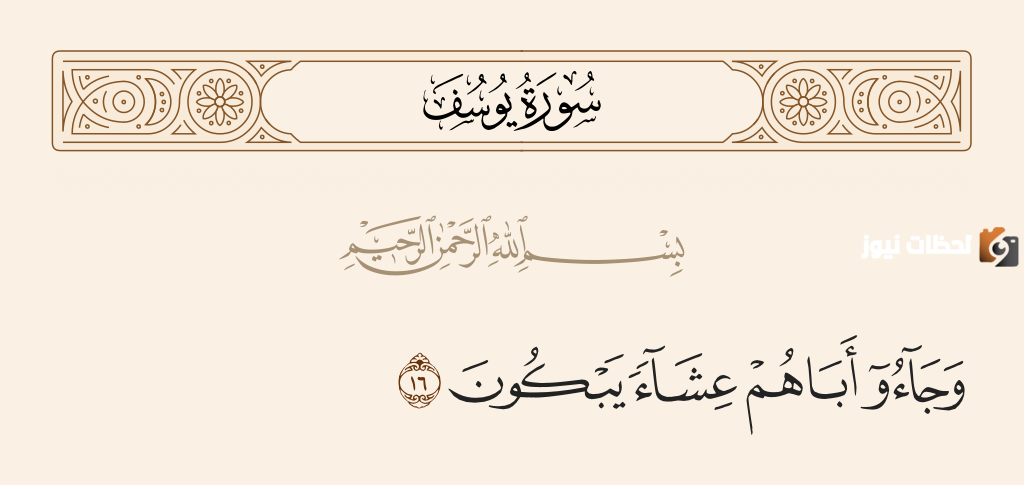 سُورَةُ يُوسُفَ
بِسْمِ ٱللَّهِ ٱلرَّحْمَٰنِ ٱلرَّحِيمِ
لحظات نيوز
وَجَآءُوٓ أَبَاهُمْ عِشَآءً يَبْكُونَ ١٦